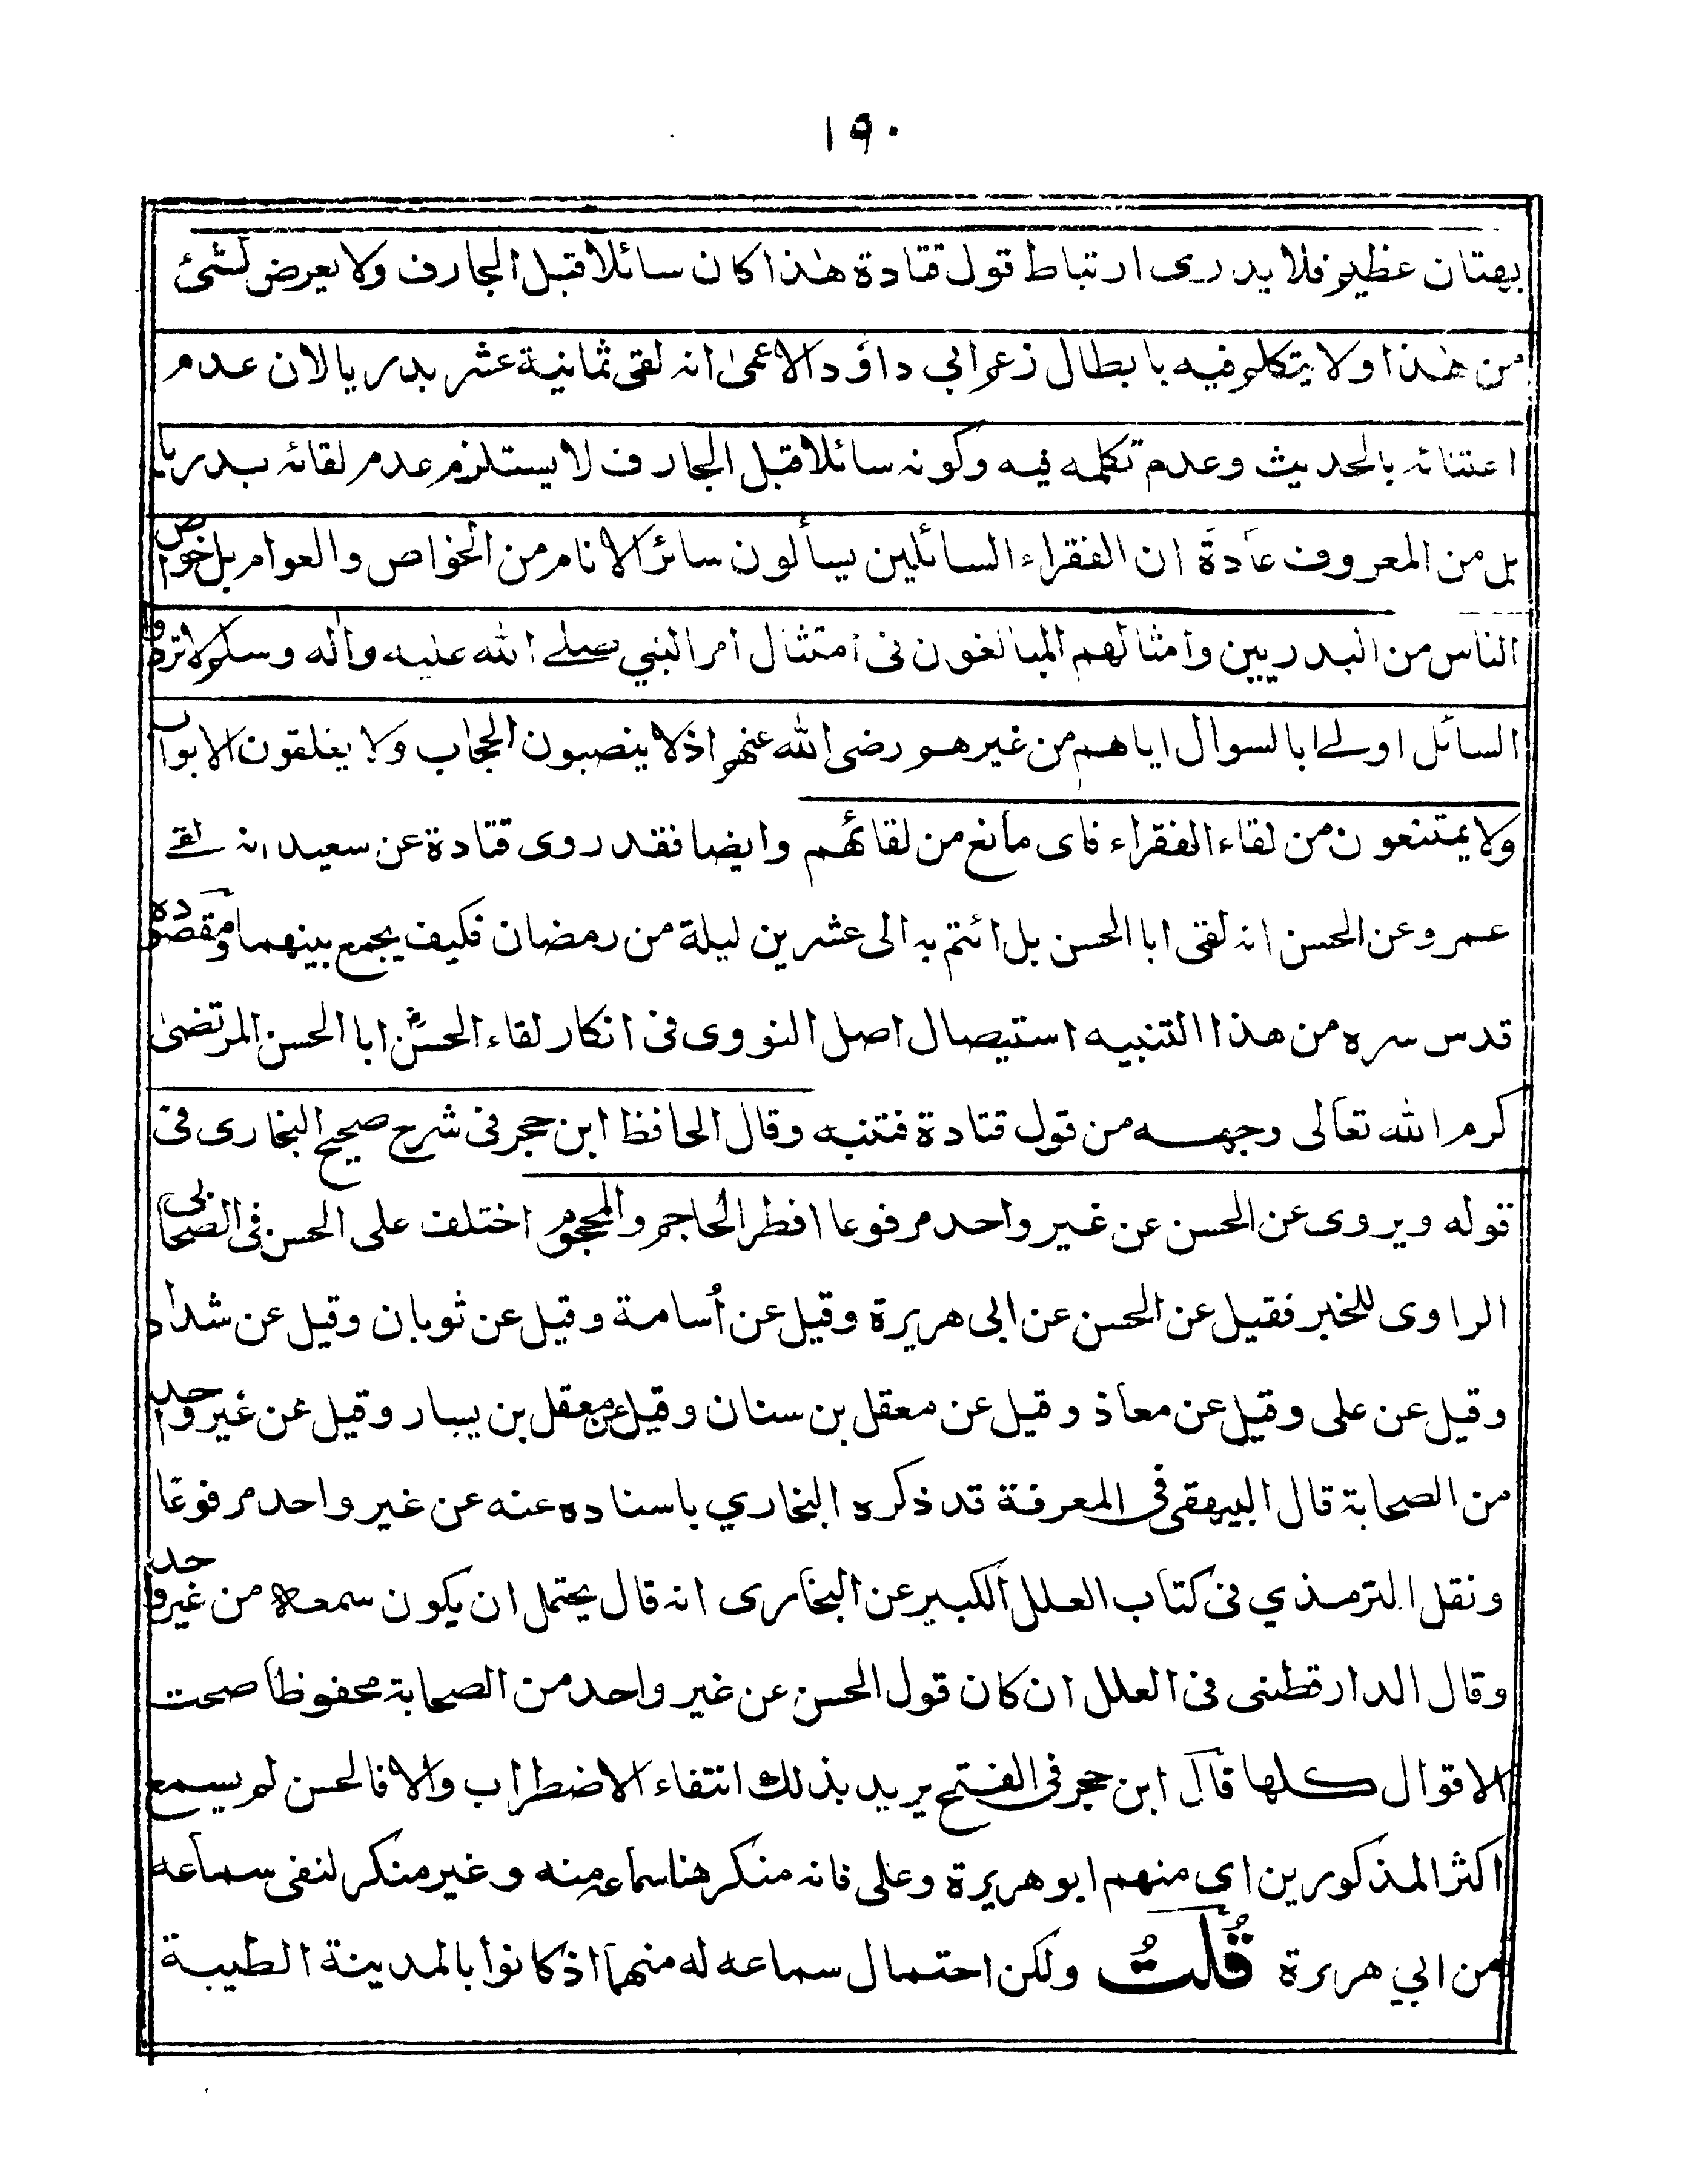 ١٩٠
بهتان عظيم فلا يدرى ارتباط قول قتادة هٰذا كان سائلا قبل الجارف ولا يعرض لشئ
من هٰذا ولا يتكلم فيه بابطال زعم ابي داؤد الاعمىٰ انه لقى ثمانية عشر بدريا لان عدم
اعتنائه بالحديث وعدم تكلمه فيه وكونه سائلا قبل الجارف لا يستلزم عدم لقائه بدريا
بل من المعروف عادة ان الفقراء السائلين يسألون سائر الانام من الخواص والعوام بل خواص
الناس من البدريين وامثالهم المبالغون فى امتثال امر النبي صلے الله عليه واٰله وسلم لا تردوا
السائل اولے ابالسوال اياهم من غيرهم رضى الله عنهم اذ لا ينصبون الحجاب ولا يغلقون الابواب
ولا يمتنعون من لقاء الفقراء فاى مانع من لقائهم وايضا فقد روى قتادة عن سعيد انه لقے
عمر وعن الحسن انه لقى ابا الحسن بل ائتم به الى عشرين ليلة من رمضان فكيف يجمع بينهما ومقصوده
قدس سره من هذا التنبيه استيصال اصل النووى فى انكار لقاء الحسنؓ ابا الحسن المرتضىٰ
كرم الله تعالى وجهه من قول قتادة فتنبه وقال الحافظ ابن حجر فى شرح صحيح البخارى فى
قوله ويروى عن الحسن عن غير واحد مرفوعا افطر الحاجم والمحجوم اختلف على الحسن فى الصحابى
الراوى للخبر فقيل عن الحسن عن ابى هريرة وقيل عن أسامة وقيل عن ثوبان وقيل عن شداد
وقيل عن على وقيل عن معاذ وقيل عن معقل بن سنان وقيل عن معقل بن يسار وقيل عن غير واحد
من الصحابة قال البيهقى فى المعرفة قد ذكره البخاري باسناده عنه عن غير واحد مرفوعًا
ونقل الترمذي فى كتاب العلل الكبير عن البخارى انه قال يحتمل ان يكون سمعه من غير واحد
وقال الدارقطنى فى العلل ان كان قول الحسن عن غير واحد من الصحابة محفوظا صحت
الاقوال كلها قال ابن حجر فى الفتح يريد بذلك انتفاء الاضطراب والا فالحسن لم يسمع
اكثر المذكورين اى منهم ابو هريرة وعلى فانه منكر هنا سماعه منه وغير منكر لنفى سماعه
من ابي هريرة قُلتُ ولكن احتمال سماعه له منهما اذ كانوا بالمدينة الطيبة